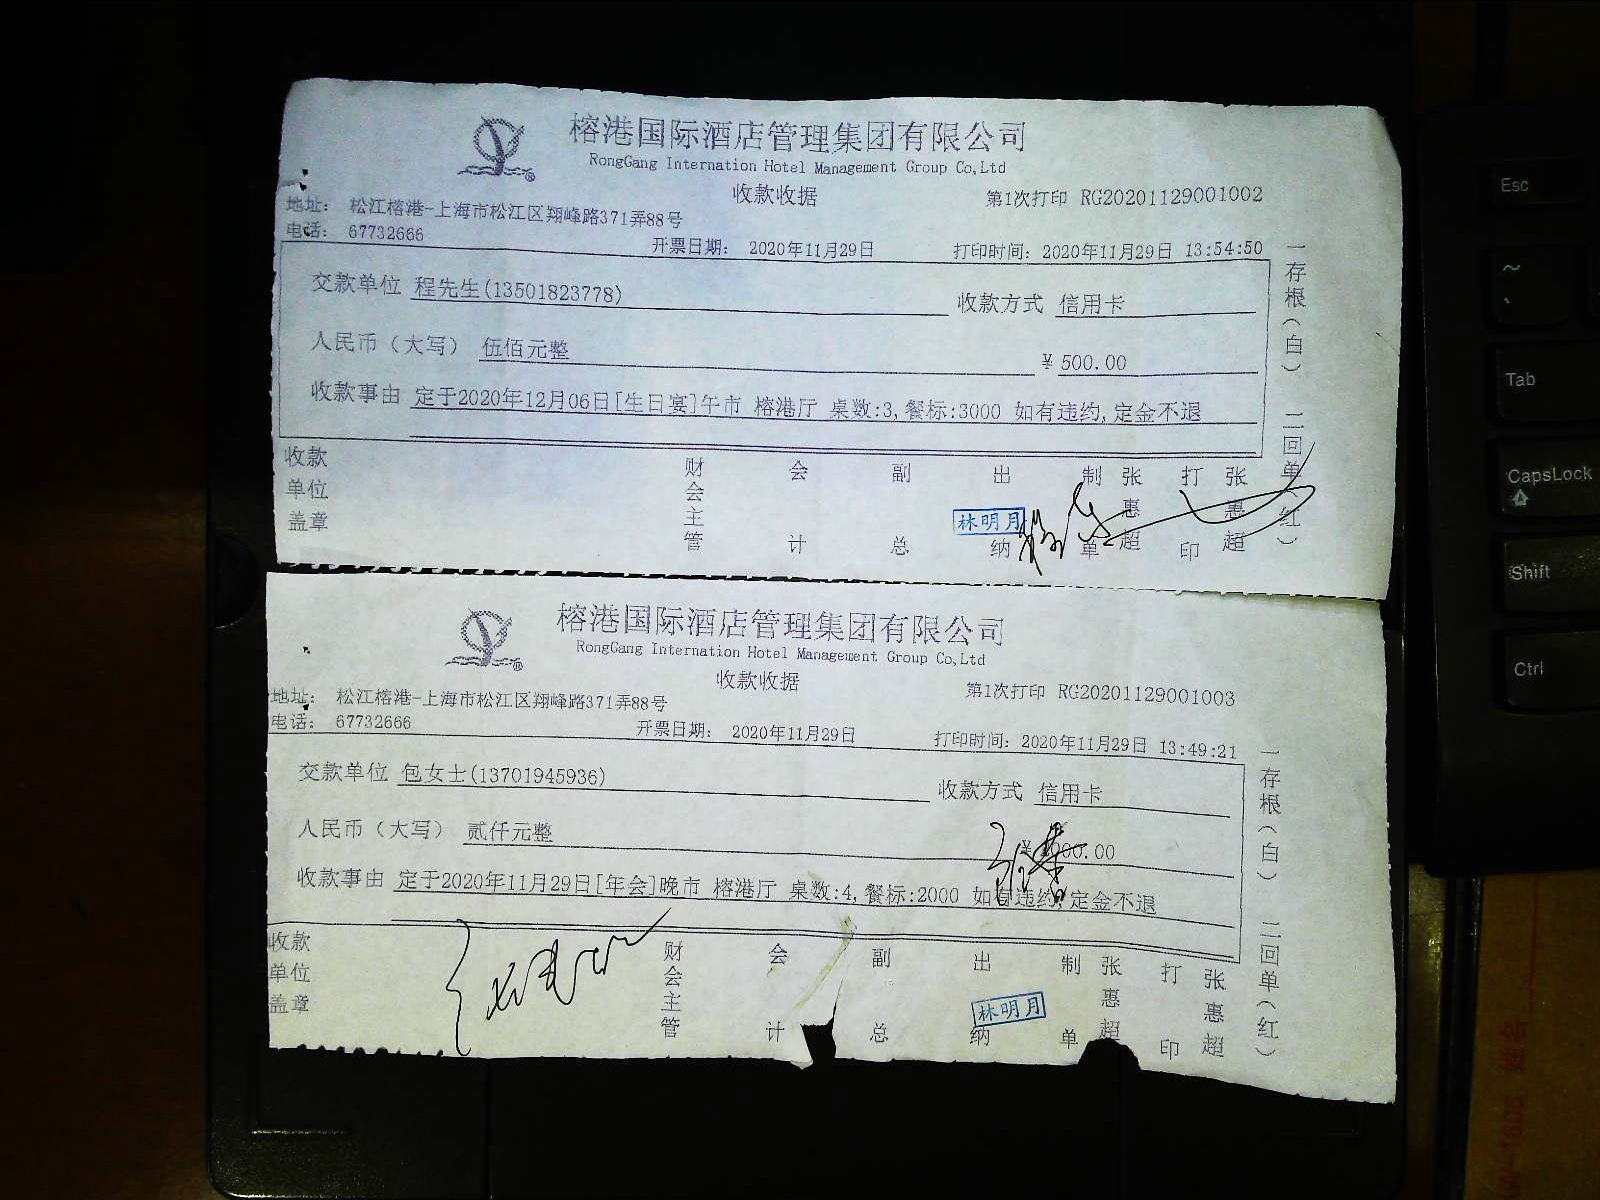 榕港国际酒店管理集团有限公司
RongGang Internation Hotel Management Group Co,Ltd
收款收据
第1次打印 RG20201129001002
地址： 松江榕港-上海市松江区翔峰路371弄88号
电话： 67732666
开票日期： 2020年11月29日
打印时间： 2020年11月29日 13:54:50
交款单位 程先生(13501823778)
收款方式 信用卡
人民币（大写） 伍佰元整
¥ 500.00
收款事由 定于2020年12月06日[生日宴]午市 榕港厅 桌数:3,餐标:3000 如有违约,定金不退
一存根（白） 二回单（红）
收款单位盖章
财会主管
会计
副总
出纳
林明月
制单
张惠超
打印
张惠超
榕港国际酒店管理集团有限公司
RongGang Internation Hotel Management Group Co,Ltd
收款收据
第1次打印 RG20201129001003
地址： 松江榕港-上海市松江区翔峰路371弄88号
电话： 67732666
开票日期： 2020年11月29日
打印时间： 2020年11月29日 13:49:21
交款单位 包女士(13701945936)
收款方式 信用卡
人民币（大写） 贰仟元整
¥ 000.00
收款事由 定于2020年11月29日[年会]晚市 榕港厅 桌数:4,餐标:2000 如有违约,定金不退
一存根（白） 二回单（红）
收款单位盖章
财会主管
会计
副总
出纳
林明月
制单
张惠超
打印
张惠超
Esc
~
Tab
CapsLock
Shift
Ctrl